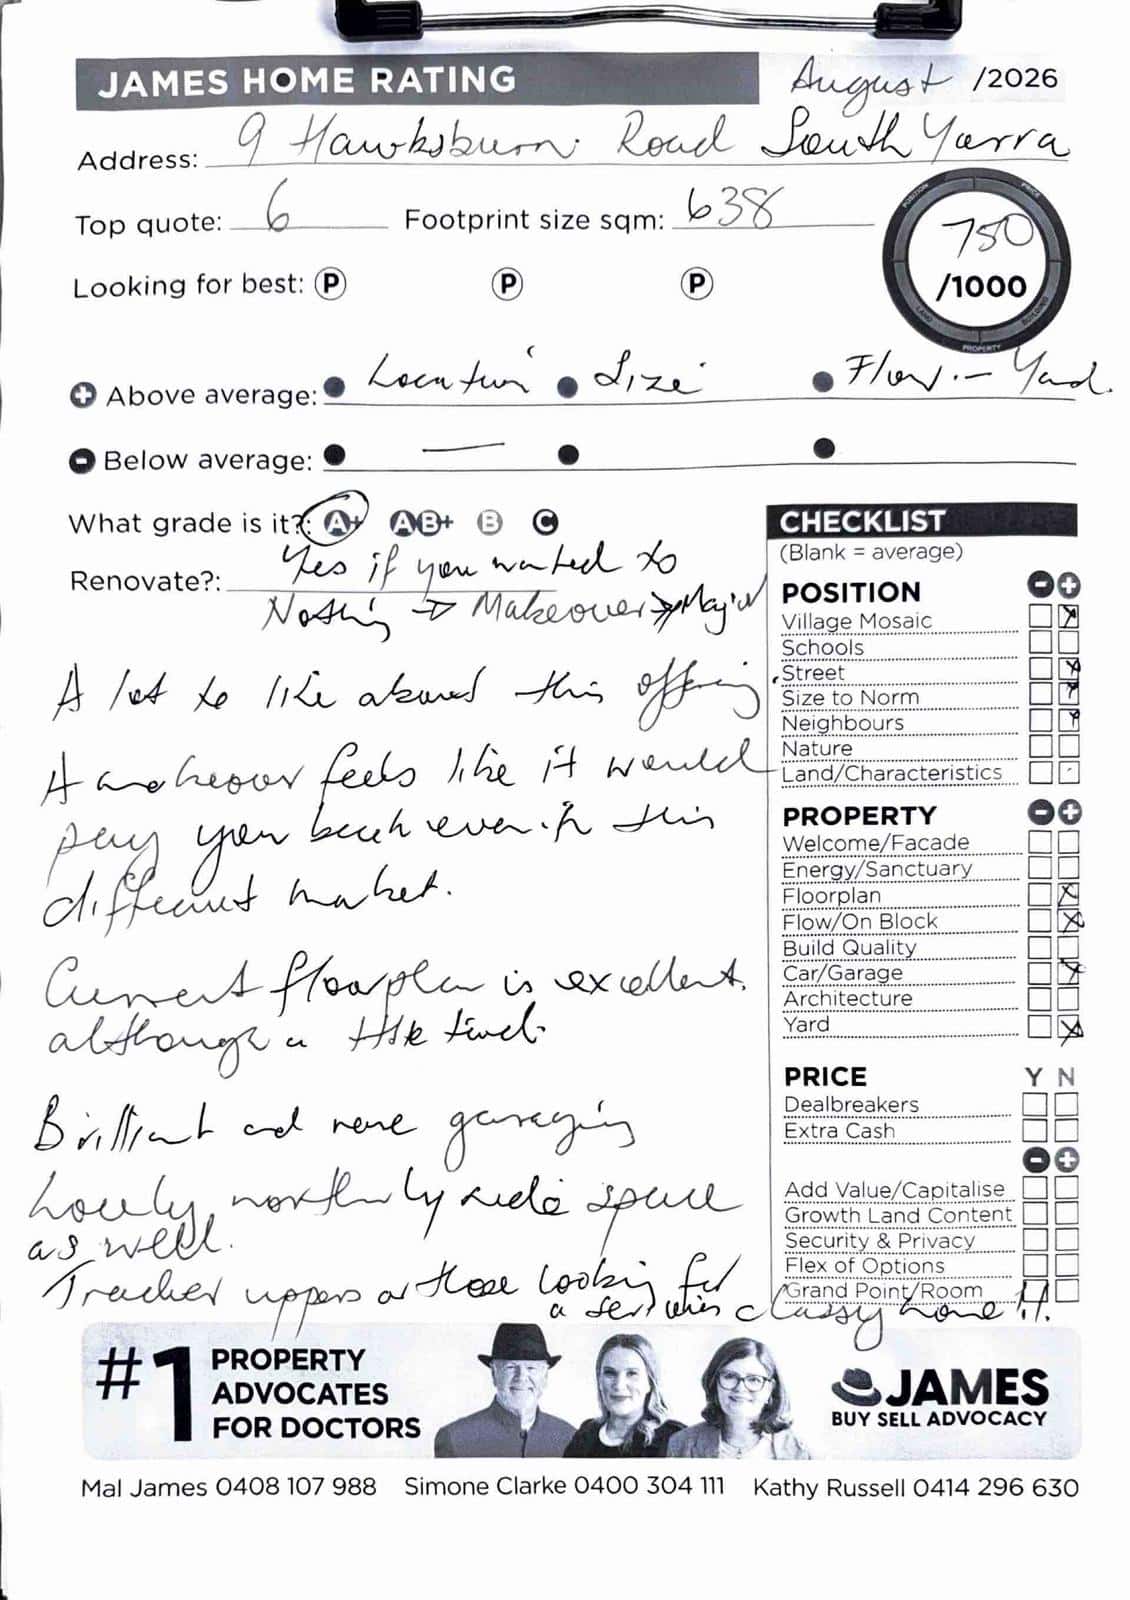 JAMES HOME RATING August /2026
Address: 9 Hawksburn Road South Yarra
Top quote: 6 Footprint size sqm: 638
POSITION PRICE BUILDING PROPERTY LAND
750
/1000
Looking for best: P P P
+ Above average: • Location • Size • Flow - Yard.
- Below average: • — • •
What grade is it?: A+ AB+ B C
Renovate?: Yes if you wanted to
Nothing → Makeover → Major
A lot to like about this offering.
A makeover feels like it would
pay you back even in this
different market.
Current floorplan is excellent
although a little tired.
Brilliant and rare garaging
Lovely northerly side space
as well.
Tracker uppers or those looking for
a classy home !!
CHECKLIST
(Blank = average)
POSITION - +
Village Mosaic
Schools
Street
Size to Norm
Neighbours
Nature
Land/Characteristics
PROPERTY - +
Welcome/Facade
Energy/Sanctuary
Floorplan
Flow/On Block
Build Quality
Car/Garage
Architecture
Yard
PRICE Y N
Dealbreakers
Extra Cash
- +
Add Value/Capitalise
Growth Land Content
Security & Privacy
Flex of Options
Grand Point/Room
#1 PROPERTY
ADVOCATES
FOR DOCTORS
JAMES
BUY SELL ADVOCACY
Mal James 0408 107 988 Simone Clarke 0400 304 111 Kathy Russell 0414 296 630